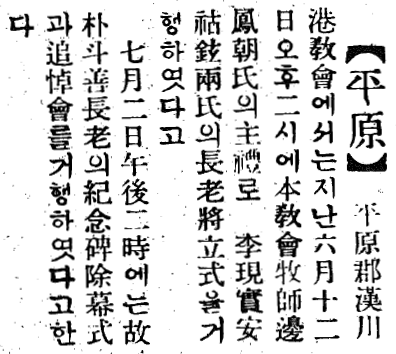 【平原】 平原郡漢川
港敎會에서는지난六月十二
日오후二시에本敎會牧師邊
鳳朝氏의主禮로 李現實安
祜鉉兩氏의長老將立式을거
행하엿다고
七月二日午後二時에는故
朴斗善長老의紀念碑除幕式
과追悼會를거행하엿다고한
다